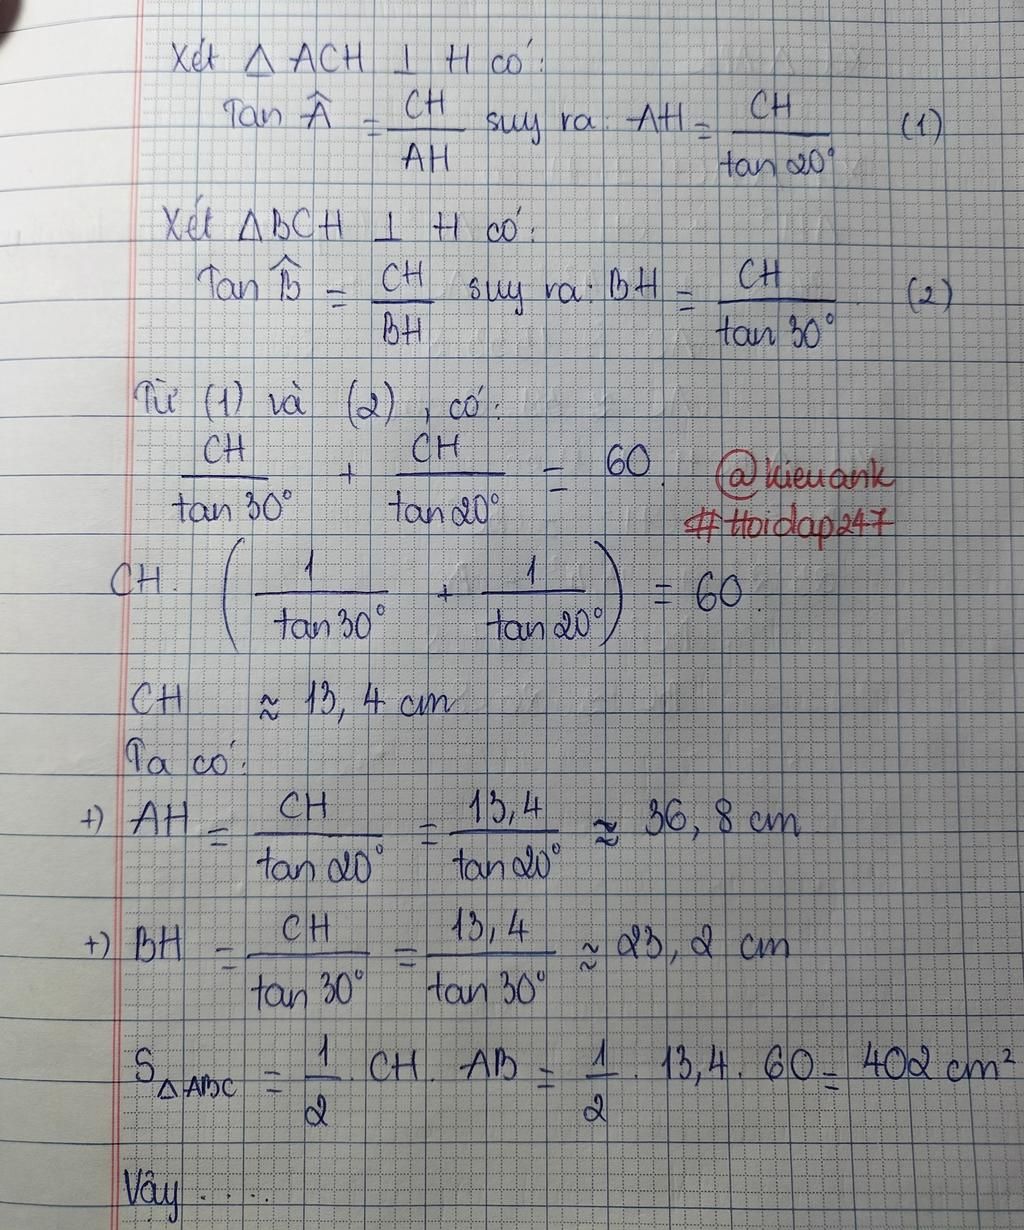 Xét △ ACH ⊥ H có:
Tan Â = CH/AH suy ra: AH = CH/tan 20° (1)
Xét △BCH ⊥ H có:
Tan B̂ = CH/BH suy ra: BH = CH/tan 30° (2)
Từ (1) và (2), có:
CH/tan 30° + CH/tan 20° = 60.
@kieuank
#Hoidap247
CH. (1/tan 30° + 1/tan 20°) = 60.
CH ≈ 13,4 cm
Ta có:
+) AH = CH/tan 20° = 13,4/tan 20° ≈ 36,8 cm
+) BH = CH/tan 30° = 13,4/tan 30° ≈ 23,2 cm
S△ABC = 1/2 . CH. AB = 1/2 . 13,4. 60 = 402 cm²
Vậy .....